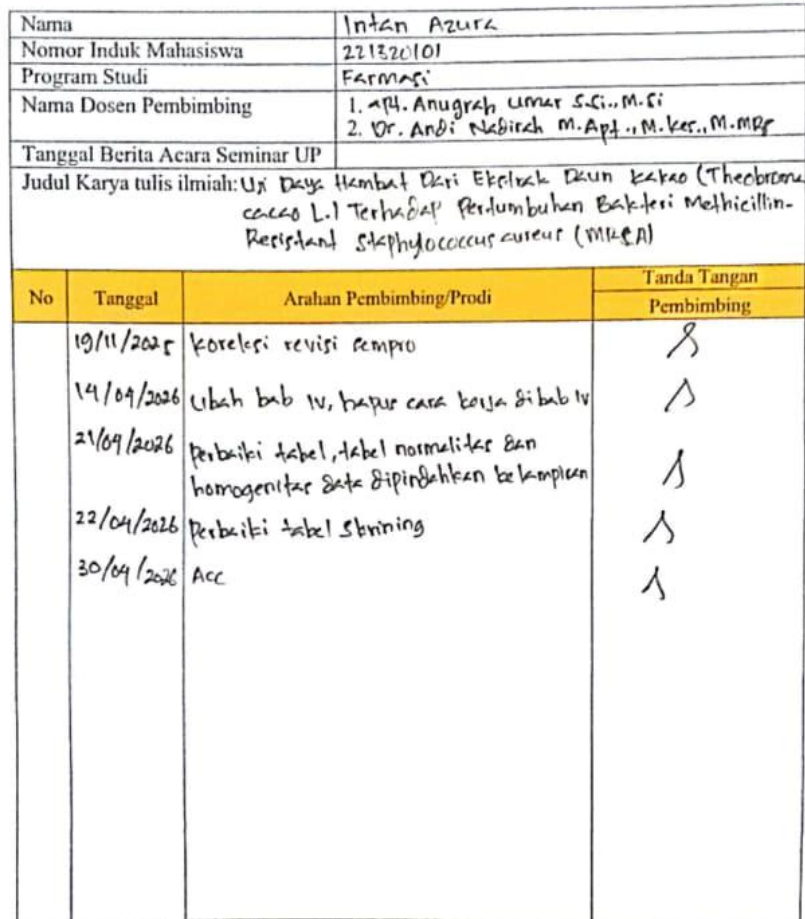 Nama Intan Azura
Nomor Induk Mahasiswa 221320101
Program Studi Farmasi
Nama Dosen Pembimbing 1. apt. Anugrah Umar S.Si., M.Si
2. Dr. Andi Nadirah M.Apt., M.Kes., M.MRS
Tanggal Berita Acara Seminar UP
Judul Karya tulis ilmiah: Uji Daya Hambat Dari Ekstrak Daun kakao (Theobroma
cacao L.) Terhadap Pertumbuhan Bakteri Methicillin-
Resistant Staphylococcus aureus (MRSA)
No Tanggal Arahan Pembimbing/Prodi Tanda Tangan
Pembimbing
19/11/2025 koreksi revisi sempro
14/04/2026 Ubah bab IV, hapus cara kerja di bab IV
21/04/2026 perbaiki tabel, tabel normalitas dan
homogenitas data dipindahkan ke lampiran
22/04/2026 perbaiki tabel skrining
30/04/2026 Acc